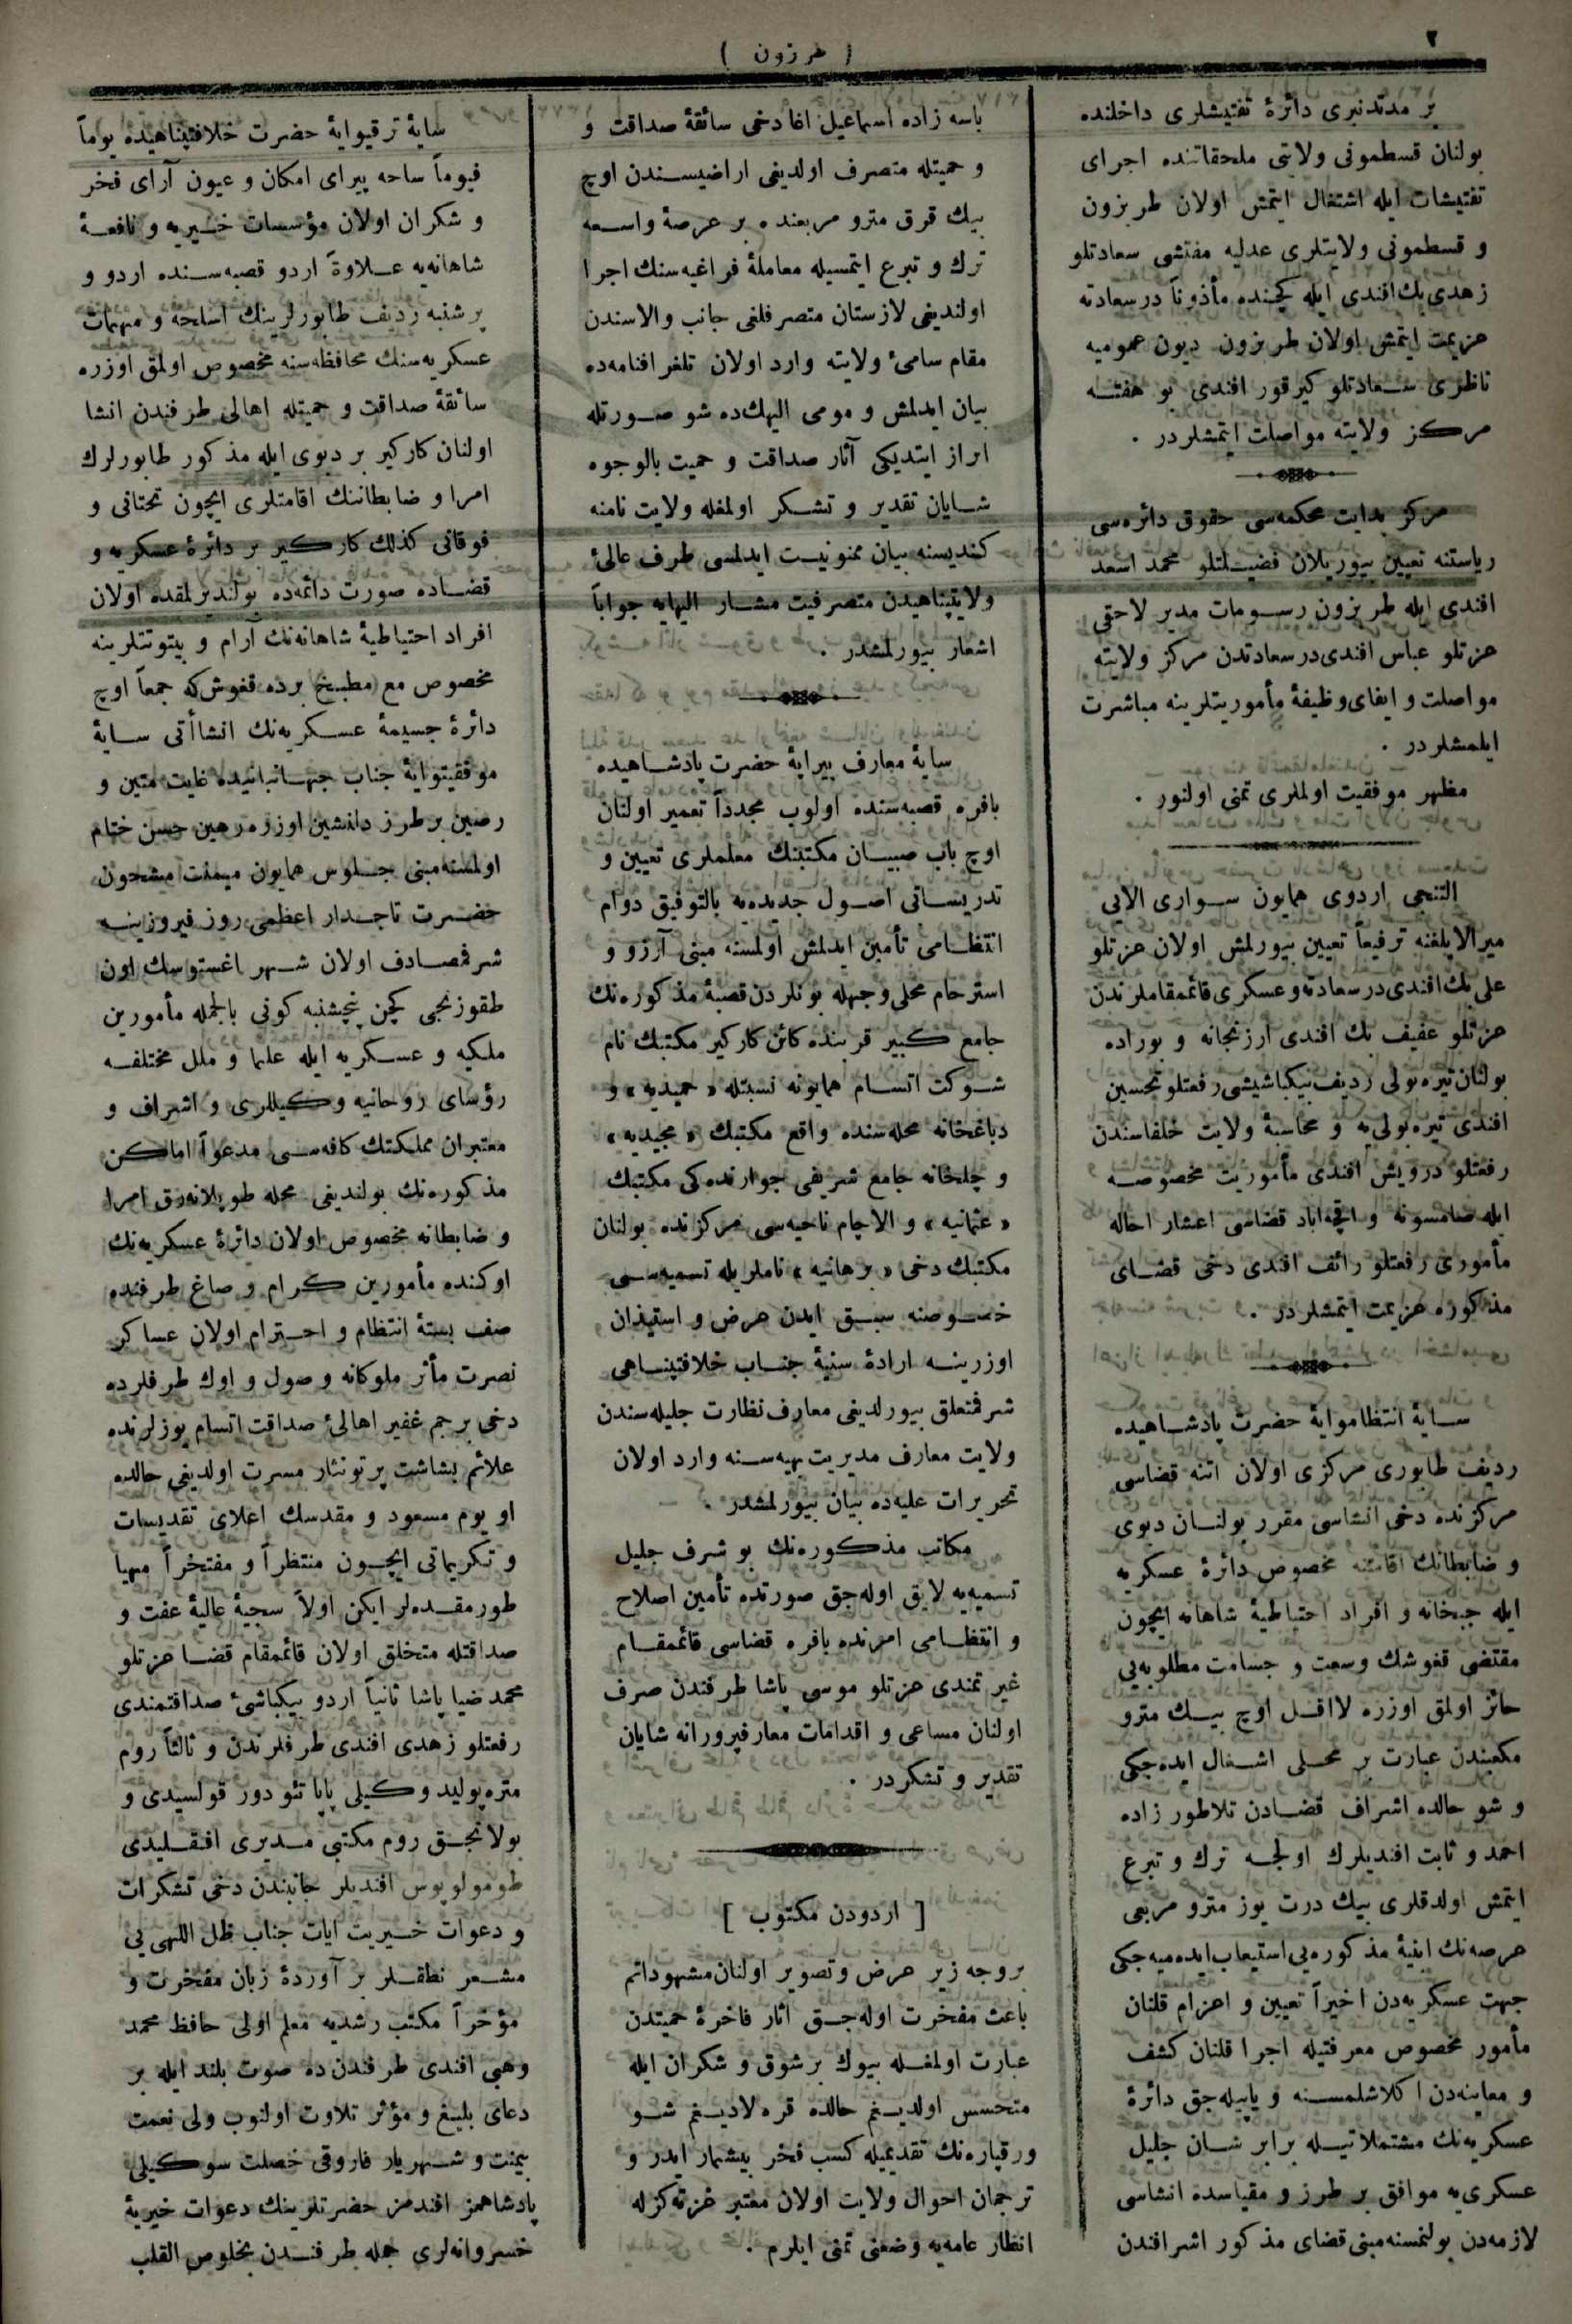 ٢
( طرزون )
بر مدتدنبری دائرهٔ تفتیشلری داخلنده
بولنان قسطمونی ولایتی ملحقاتنده اجرای
تفتیشات ایله اشتغال ایتمش اولان طربزون
و قسطمونی ولایتلری عدلیه مفتشی سعادتلو
زهدی بك افندی ایله کچنده مأذوناً درسعادته
عزیمت ایتمش اولان طربزون دیون عمومیه
ناظری سعادتلو کیرقور افندی بو هفته
مركز ولایته مواصلت ایتمشلردر .
مركز بدایت محكمه‌سی حقوق دائره‌سی
ریاستنه تعیین بیوریلان فضیلتلو محمد اسعد
افندی ایله طربزون رسومات مدیر لاحقی
عزتلو عباس افندی درسعادتدن مركز ولایته
مواصلت و ایفای وظیفهٔ مأموریتلرینه مباشرت
ایلمشلردر .
مظهر موفقیت اولملری تمنی اولنور .
التنجی اردوی همایون سواری الایی
میرالایلغنه ترفیعاً تعیین بیورلمش اولان عزتلو
علی بك افندی درسعادته و عسكری قائمقاملرندن
عزتلو عفیف بك افندی ارزنجانه و بوراده
بولنان تیره‌بولی ردیف بیكباشیشی رفعتلو تحسین
افندی تیره‌بولی‌یه و محاسبهٔ ولایت خلفاسندن
رفعتلو درویش افندی مأموریت مخصوصه
ایله صامسونه و اقچه‌اباد قضاسی اعشار احاله
مأموری رفعتلو رائف افندی دخی قضای
مذكوره عزیمت ایتمشلردر .
سایهٔ انتظاموایهٔ حضرت پادشاهیده
ردیف طابوری مركزی اولان اتنه قضاسی
مركزنده دخی انشاسی مقرر بولنان دبوی
و ضابطانك اقامتنه مخصوص دائرهٔ عسكریه
ایله جبخانه و افراد احتیاطیهٔ شاهانه ایچون
مقتضی قغوشك وسعت و جسامت مطلوبه‌یی
حائز اولمق اوزره لااقل اوچ بیك مترو
مكعبندن عبارت بر محلی اشغال ایده‌جكی
و شو حالده اشراف قضادن تلاطور زاده
احمد و ثابت افندیلرك اولجه ترك و تبرع
ایتمش اولدقلری بیك درت یوز مترو مربعی
عرصه‌نك ابنیهٔ مذكوره‌یی استیعاب ایده‌میه‌جكی
جهت عسكریه‌دن اخیراً تعیین و اعزام قلنان
مأمور مخصوص معرفتیله اجرا قلنان كشف
و معاینه‌دن اكلاشلمسنه و یاپیله‌جق دائرهٔ
عسكریه‌نك مشتملاتیله برابر شان جلیل
عسكری‌یه موافق بر طرز و مقیاسده انشاسی
لازمه‌دن بولنمسنه مبنی قضای مذكور اشرافندن
باسه زاده اسماعیل اغا دخی سائقهٔ صداقت و
و حمیتله متصرف اولدیغی اراضیسندن اوچ
بیك قرق مترو مربعنده بر عرصهٔ واسعه
ترك و تبرع ایتمسیله معاملهٔ فراغیه‌سنك اجرا
اولندیغی لازستان متصرفلغی جانب والاسندن
مقام سامیٔ ولایته وارد اولان تلغرافنامه‌ده
بیان ایدلمش و مومی الیهك ده شو صورتله
ابراز ایتدیكی آثار صداقت و حمیت بالوجوه
شایان تقدیر و تشكر اولمغله ولایت نامنه
كندیسنه بیان ممنونیت ایدلمسی طرف عالیٔ
ولایتپناهیدن متصرفیت مشار الیهایه جواباً
اشعار بیورلمشدر .
سایهٔ معارف پیرایهٔ حضرت پادشاهیده
بافره قصبه‌سنده اولوب مجدداً تعمیر اولنان
اوچ باب صبیان مكتبنك معلملری تعیین و
تدریساتی اصول جدیده‌یه بالتوفیق دوام
انتظامی تأمین ایدلمش اولمسنه مبنی آرزو و
استرحام محلی وجهله بونلردن قصبهٔ مذكوره‌نك
جامع كبیر قربنده كائن كاركیر مكتبك نام
شوكت اتسام همایونه نسبتله « حمیدیه » و
دباغخانه محله‌سنده واقع مكتبك « مجیدیه »
و چلخانه جامع شریفی جوارنده‌كی مكتبك
« عثمانیه » و الاچام ناحیه‌سی مركزنده بولنان
مكتبك دخی « برهانیه » ناملریله تسمیه‌سی
خصوصنه سبق ایدن عرض و استیذان
اوزرینه ارادهٔ سنیهٔ جناب خلافتپناهی
شرفتعلق بیورلدیغی معارف نظارت جلیله‌سندن
ولایت معارف مدیریت بهیه‌سنه وارد اولان
تحریرات علیه‌ده بیان بیورلمشدر .
مكاتب مذكوره‌نك بو شرف جلیل
تسمیه‌یه لایق اوله‌جق صورتده تأمین اصلاح
و انتظامی امرنده بافره قضاسی قائمقام
غیرتمندی عزتلو موسی پاشا طرفندن صرف
اولنان مساعی و اقدامات معارفپرورانه شایان
تقدیر و تشكردر .
[ اردودن مكتوب ]
بر وجه زیر عرض و تصویر اولنان مشهوداتم
باعث مفخرت اوله‌جق اثار فاخرهٔ حمیتدن
عبارت اولمغله بیوك بر شوق و شكران ایله
متحسس اولدیغم حالده قره‌لادیغم شو
ورقپاره‌نك تقدیمیله كسب فخر بیشمار ایدر و
ترجمان احوال ولایت اولان معتبر غزته‌كزله
انظار عامه‌یه وضعنی تمنی ایلرم .
سایهٔ ترقیوایهٔ حضرت خلافتپناهیده یوماً
فیوماً ساحه پیرای امكان و عیون آرای فخر
و شكران اولان مؤسسات خیریه و نافعهٔ
شاهانه‌یه علاوةً اردو قصبه‌سنده اردو و
پرشنبه ردیف طابورلرینك اسلحه و مهمات
عسكریه‌سنك محافظه‌سنه مخصوص اولمق اوزره
سائقهٔ صداقت و حمیتله اهالی طرفندن انشا
اولنان كاركیر بر دبوی ایله مذكور طابورلرك
امرا و ضابطاننك اقامتلری ایچون تحتانی و
فوقانی كذلك كاركیر بر دائرهٔ عسكریه و
قضاده صورت دائمه‌ده بولندیرلمقده اولان
افراد احتیاطیهٔ شاهانه‌نك آرام و بیتوتتلرینه
مخصوص مع مطبخ برده قغوش‌كه جمعاً اوچ
دائرهٔ جسیمهٔ عسكریه‌نك انشاأتی سایهٔ
موفقیتوایهٔ جناب جهانبانیده غایت متین و
رصین بر طرز دلنشین اوزره رهین حسن ختام
اولمسنه مبنی جلوس همایون میمنت مشحون
حضرت تاجدار اعظمی روز فیروزینه
شرفمصادف اولان شهر اغستوسك اون
طقوزنجی كچن پنچشنبه كونی بالجمله مأمورین
ملكیه و عسكریه ایله علما و ملل مختلفه
رؤسای روحانیه وكیللری و اشراف و
معتبران مملكتك كافه‌سی مدعواً اماكن
مذكوره‌نك بولندیغی محله طوپلانه‌رق امرا
و ضابطانه مخصوص اولان دائرهٔ عسكریه‌نك
اوكنده مأمورین كرام و صاغ طرفنده
صف بستهٔ انتظام و احترام اولان عساكر
نصرت مأثر ملوكانه و صول و اوك طرفلرده
دخی بر جم غفیر اهالیٔ صداقت اتسام یوزلرنده
علائم بشاشت پرتونثار مسرت اولدیغی حالده
او یوم مسعود و مقدسك اعلای تقدیسات
و تكریماتی ایچون منتظراً و مفتخراً مهیا
طورمقده‌لر ایكن اولاً سجیهٔ عالیهٔ عفت و
صداقتله متخلق اولان قائمقام قضا عزتلو
محمد ضیا پاشا ثانیاً اردو بیكباشیٔ صداقتمندی
رفعتلو زهدی افندی طرفلرندن و ثالثاً روم
متره‌پولید وكیلی پاپا تئودور قولسیدی و
بولانجق روم مكتبی مدیری افقلیدی
طومولوپوس افندیلر جانبندن دخی تشكرات
و دعوات خیریت ایات جناب ظل اللهی‌یی
مشعر نطقلر بر آوردهٔ زبان مفخرت و
مؤخراً مكتب رشدیه معلم اولی حافظ محمد
وهبی افندی طرفندن ده صوت بلند ایله بر
دعای بلیغ و مؤثر تلاوت اولنوب ولی نعمت
بیمنت و شهریار فاروقی خصلت سوكیلی
پادشاهمز افندمز حضرتلرینك دعوات خیریهٔ
خسروانه‌لری جمله طرفندن بخلوص القلب